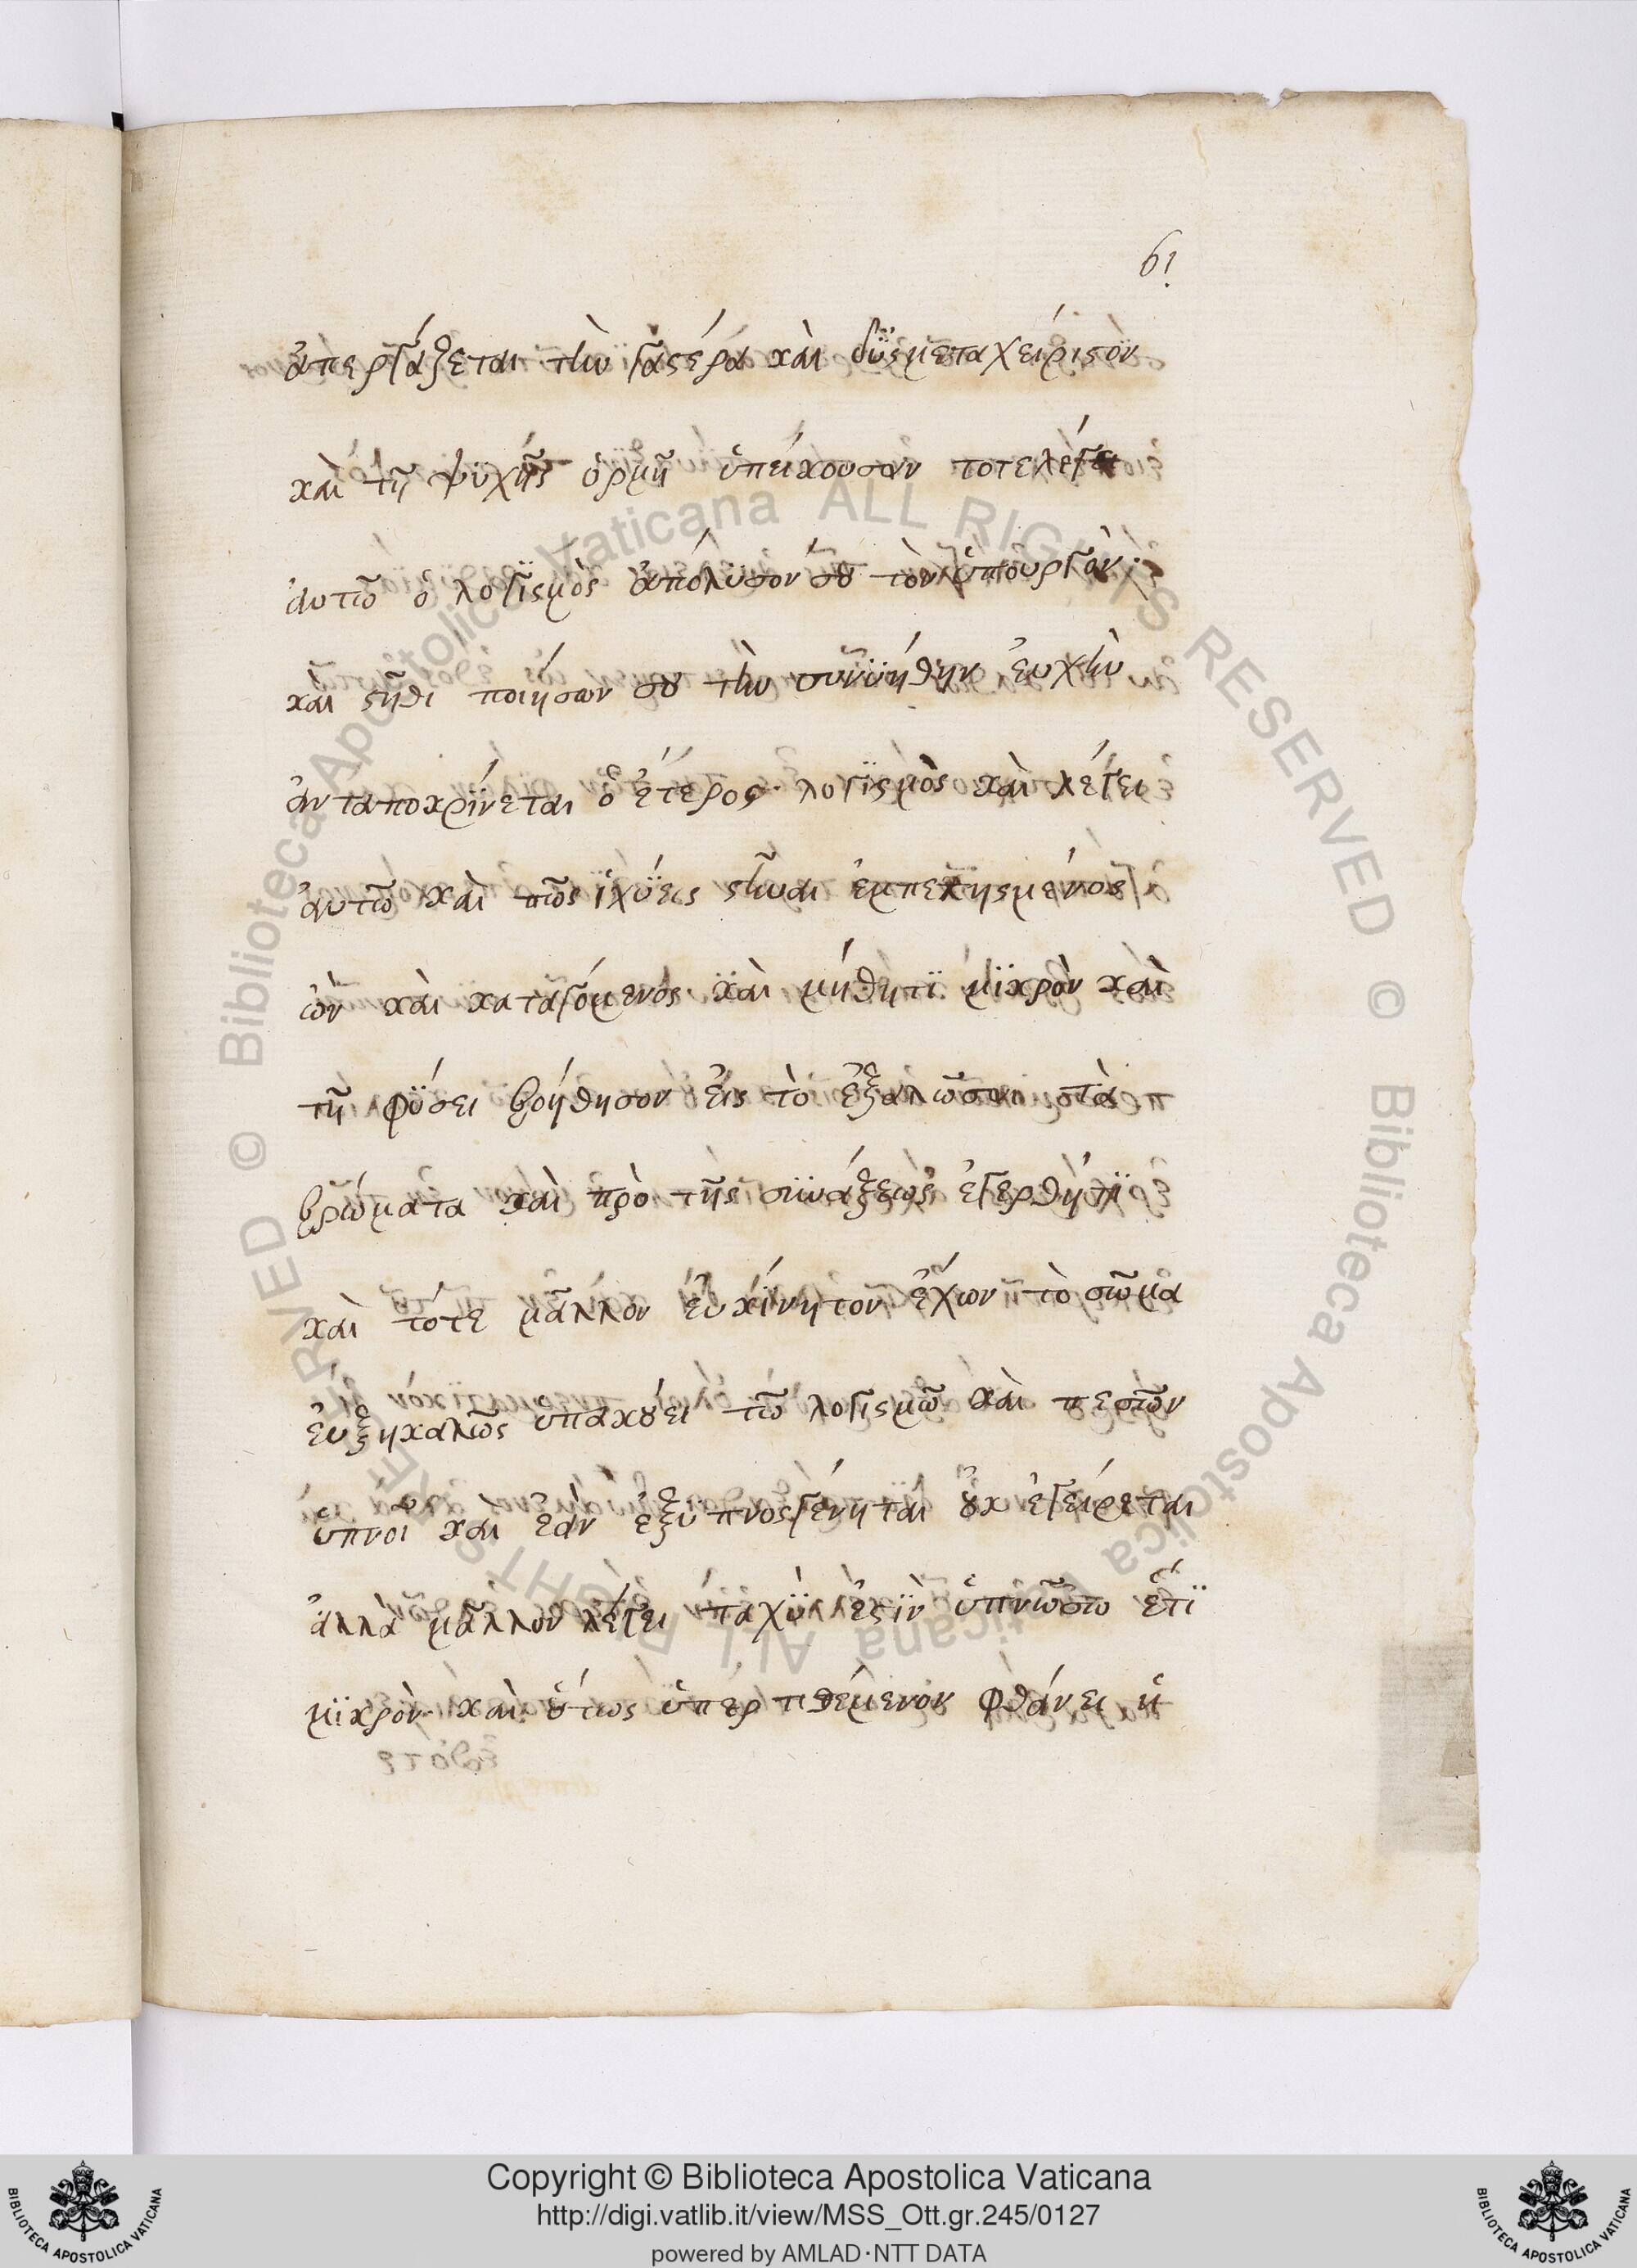 61
ἀπεργάζεται τὴν γαστέρα καὶ δϋσμεταχείριστον
καὶ τῆ ψϋχῆς ὁρμῆ ὑπείκουσαν τοτελέγει
ἀυτῶ ὁ λογϊσμὸς ἀπόλϋσον σου τὸν ὑπουργὸν·
καὶ στῆθι ποιήσων σου τὴν συνϋήθην ἐυχὴν
ἀνταποκρίνεται ὁ ἕτερος λογϊσμὸς καὶ λέγει
ἀυτῶ καὶ πῶς ἰχύεις στῆναι ἐμπεπλησμένος
ὢν καὶ καταγόμενος· καὶ μήθητϊ μϊκρὸν καὶ
τῆ φύσει βοήθησον ἐις τὸ ἐξαλῶσαι τὰ
βρώματα καὶ πρὸ τῆς συνάξεως ἐγερθήτϊ
καὶ τότε μᾶλλον ἐυκίνητον ἔχων τὸ σῶμα
ἐυξηκαλῶς ὑπακούει τῶ λογισμῶ καὶ πεσῶν
ὑπνοῖ καὶ ἐὰν ἔξϋπνοςγένηται οὐκ ἐγείρεται
ἀλλὰ μᾶλλον λέγει παχὺ ἐστϊν ὑπνώσω ἔτϊ
μϊκρὸν καὶ οὕτως ὑπερτιθέμενον φθάνει ἡ
Copyright © Biblioteca Apostolica Vaticana
http://digi.vatlib.it/view/MSS_Ott.gr.245/0127
powered by AMLAD·NTT DATA
BIBLIOTECA APOSTOLICA VATICANA
BIBLIOTECA APOSTOLICA VATICANA